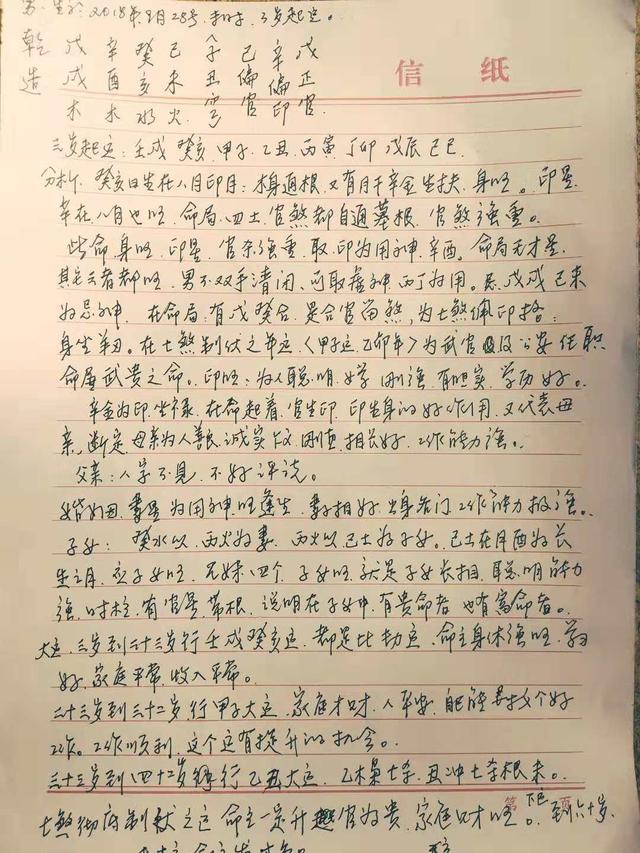 男 生于2018年8月28号 3岁起运。
乾 戊 辛 癸 己 命 己 辛 戊
造 戌 酉 亥 未 丑 偏 偏 正
木 木 水 火 官 印 官
信 纸
三岁起运:壬戌 癸亥 甲子 乙丑 丙寅 丁卯 戊辰 己巳
分析:癸亥日生在八月印月:本身通根,又有月干辛金生扶,身旺。印星
辛在八月也旺,命局四土官煞都自通墓根,官煞强重。
此命身旺,印星官杀强重,取印为用神辛酉。命局无才星
其它五者都旺,男不双手清闲,可取虚神丙丁为用。忌戊戌己未
为忌神 在命局有戊癸合,是合官留煞,为七煞佩印格
身坐羊刃。在七煞制伏之年运(甲子运,乙卯年)为武官以及公安任职
命局武贵之命。印旺:为人聪明,好学刚强,有胆实,学历好。
辛金为印坐禄,在命起着官生印,印生身的好作用,又代表母
亲,断定母亲为人善良诚实 刚直,相长好,工作能力强。
父亲:八字不见,不好评说。
婚姻 妻星为用神旺逢生,妻相好,出身名门工作能力极强。
子女:癸水以丙火为妻,丙火以己土为子女。己土在月酉为长
生之月,应子女旺,兄妹四个,子女旺,就是子女长相,聪明能力
强,时柱有官星带根,说明在子女中有贵命者也有富命者。
大运,三岁到二十三岁行壬戌癸亥运,都是比劫运,命主身体强旺,学习
好,家庭平常,收入平常。
二十三岁到三十二岁行甲子大运,家庭才旺,人平安,能够寻找个好
工作。工作顺利,这个运有提升的机会。
三十三岁到四十二岁行乙丑大运,乙木枭七杀,丑冲七杀根未。
七煞彻底制伏之运,命主一定升官为贵,家庭口才旺。到六十岁
第 页